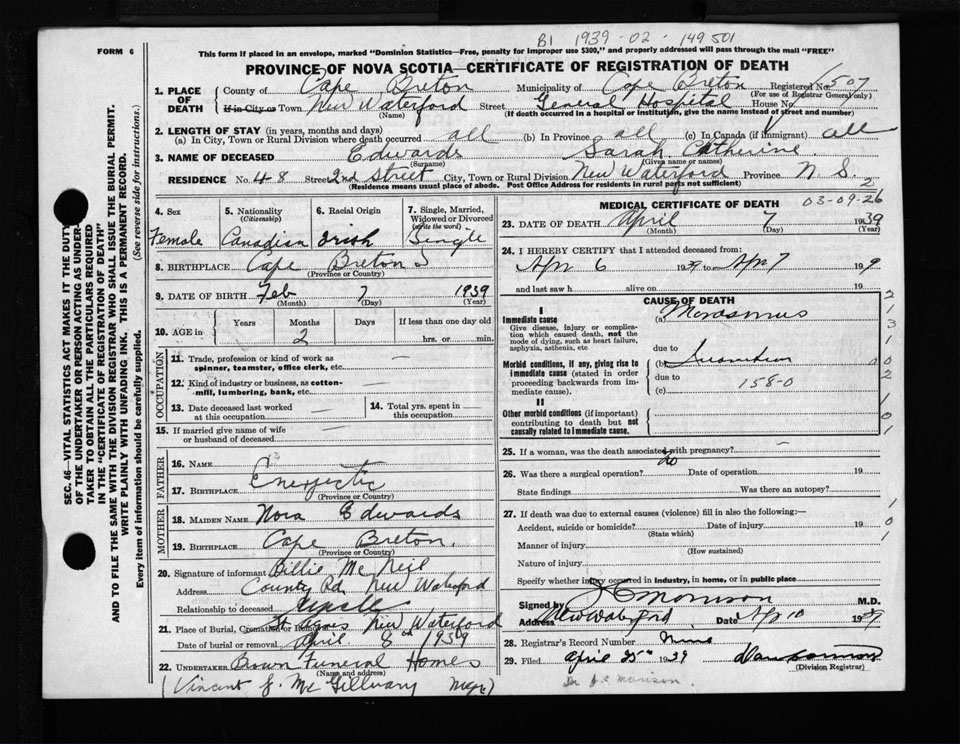 B1 1939-02-149501
FORM 6
This form if placed in an envelope, marked "Dominion Statistics—Free, penalty for improper use $300," and properly addressed will pass through the mail "FREE"
PROVINCE OF NOVA SCOTIA—CERTIFICATE OF REGISTRATION OF DEATH
SEC. 46—VITAL STATISTICS ACT MAKES IT THE DUTY
OF THE UNDERTAKER OR PERSON ACTING AS UNDER-
TAKER TO OBTAIN ALL THE PARTICULARS REQUIRED
IN THE "CERTIFICATE OF REGISTRATION OF DEATH"
AND TO FILE THE SAME WITH THE DIVISION REGISTRAR WHO SHALL ISSUE THE BURIAL PERMIT.
WRITE PLAINLY WITH UNFADING INK. THIS IS A PERMANENT RECORD.
Every item of information should be carefully supplied. (See reverse side for instructions.)
1. PLACE OF DEATH
County of Cape Breton Municipality of Cape Breton Registered No. 507
(For use of Registrar General only)
If in City or Town New Waterford Street General Hospital House No.
(Name) (If death occurred in a hospital or institution, give the name instead of street and number)
2. LENGTH OF STAY (in years, months and days)
(a) In City, Town or Rural Division where death occurred all (b) In Province all (c) In Canada (if immigrant) all
3. NAME OF DECEASED Edwards Sarah Catherine
(Surname) (Given name or names)
RESIDENCE No. 48 Street 2nd Street City, Town or Rural Division New Waterford Province N. S.
(Residence means usual place of abode. Post Office Address for residents in rural parts not sufficient)
2
03-09-26
4. Sex Female
5. Nationality (Citizenship) Canadian
6. Racial Origin Irish
7. Single, Married, Widowed or Divorced (write the word) Single
8. BIRTHPLACE Cape Breton
(Province or Country)
9. DATE OF BIRTH Feb 7 1939
(Month) (Day) (Year)
10. AGE in Years Months 2 Days If less than one day old hrs. or min.
OCCUPATION
11. Trade, profession or kind of work as spinner, teamster, office clerk, etc. —
12. Kind of industry or business, as cotton-mill, lumbering, bank, etc. —
13. Date deceased last worked at this occupation —
14. Total yrs. spent in this occupation —
15. If married give name of wife or husband of deceased —
FATHER
16. NAME
17. BIRTHPLACE
(Province or Country)
MOTHER
18. MAIDEN NAME Nora Edwards
19. BIRTHPLACE Cape Breton.
(Province or Country)
20. Signature of informant Billie Mc Neil
Address County Rd. New Waterford
Relationship to deceased Uncle
21. Place of Burial, Cremation or Removal St Agnes New Waterford
Date of burial or removal April 8th 1939
22. UNDERTAKER Brown Funeral Homes
(Name and address)
(Vincent J. Mc Gillvary Mgr.)
MEDICAL CERTIFICATE OF DEATH
23. DATE OF DEATH April 7 1939
(Month) (Day) (Year)
24. I HEREBY CERTIFY that I attended deceased from:
Apr 6 1939 to Apr 7 19 9
and last saw h alive on 19
CAUSE OF DEATH
I
Immediate cause
Give disease, injury or complication which caused death, not the mode of dying, such as heart failure, asphyxia, asthenia, etc
(a) Marasmus
due to
Morbid conditions, if any, giving rise to immediate cause (stated in order proceeding backwards from immediate cause).
(b) Inanition
due to
(c) 158-0
II
Other morbid conditions (if important) contributing to death but not causally related to immediate cause.
2
1
3
1
0
0
2
1
0
1
25. If a woman, was the death associated with pregnancy? —
26. Was there a surgical operation? no Date of operation 19
State findings Was there an autopsy?
27. If death was due to external causes (violence) fill in also the following:—
Accident, suicide or homicide? Date of injury 19
(State which)
Manner of injury
(How sustained)
Nature of injury
Specify whether injury occurred in industry, in home, or in public place
1
0
1
Signed by J C Morrison M.D.
Address New Waterford Date Apr 10 1939
28. Registrar's Record Number
29. Filed April 25th 1939
(Division Registrar)
Dr J. C. Morison